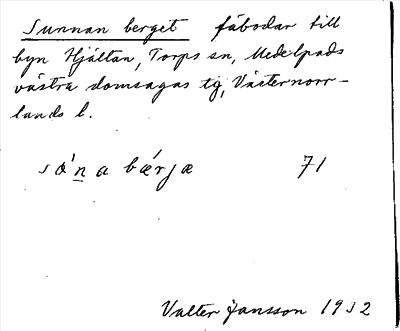 Sunnan berget fäbodar till
byn Hjältan, Torps sn, Medelpads
västra domsagas tg, Västernorr-
lands l.
sǻna bǽrjæ 71
Valter Jansson 1932